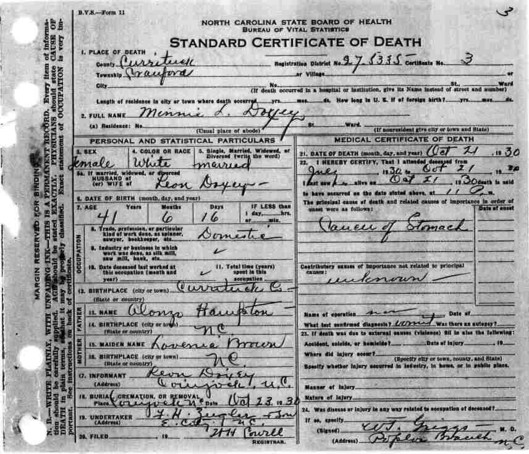 3
B.V.S.—Form 11
NORTH CAROLINA STATE BOARD OF HEALTH
BUREAU OF VITAL STATISTICS
STANDARD CERTIFICATE OF DEATH
1. PLACE OF DEATH
County Currituck Registration District No. 27-5335 Certificate No. 3
Township Crawford or Village
City No. St., Ward
(If death occurred in a hospital or institution, give its Name instead of street and number)
Length of residence in city or town where death occurred yrs. mos. ds. How long in U. S. if of foreign birth? yrs. mos. ds.
2. FULL NAME Minnie L. Doxey
(a) Residence: No. St., Ward
(Usual place of abode) (If nonresident give city or town and State)
PERSONAL AND STATISTICAL PARTICULARS
3. SEX 4. COLOR OR RACE 5. Single, Married, Widowed, or Divorced (write the word)
Female White married
5a. If married, widowed, or divorced
HUSBAND of
(or) WIFE of Leon Doxey
6. DATE OF BIRTH (month, day, and year)
7. AGE Years Months Days IF LESS than
41 6 16 1 day, hrs. or min.
8. Trade, profession, or particular kind of work done, as spinner, sawyer, bookkeeper, etc. Domestic
9. Industry or business in which work was done, as silk mill, saw mill, bank, etc.
10. Date deceased last worked at this occupation (month and year) 11. Total time (years) spent in this occupation
12. BIRTHPLACE (city or town) Currituck C.
(State or country)
13. NAME Alonzo Hampton
14. BIRTHPLACE (city or town)
(State or country) NC
15. MAIDEN NAME Lovenia Brown
16. BIRTHPLACE (city or town)
(State or country) NC
17. INFORMANT Leon Doxey
(Address) Coinjock, N.C.
18. BURIAL, CREMATION, OR REMOVAL
Place Coinjock NC Date Oct 23, 1930
19. UNDERTAKER J. H. Zeigler + Son
(Address) E. City, NC
20. FILED , 19
REGISTRAR.
MEDICAL CERTIFICATE OF DEATH
21. DATE OF DEATH (month, day, and year) Oct 21 , 1930
22. I HEREBY CERTIFY, That I attended deceased from
1930 to Oct 21 , 1930
I last saw alive on Oct 21 , 1930 death is said
to have occurred on the date stated above, at 11 P. m.
The principal cause of death and related causes of importance in order of onset were as follows: Date of onset
Cancer of Stomach
Contributory causes of importance not related to principal cause:
unknown
Name of operation Date of
What test confirmed diagnosis? Was there an autopsy?
23. If death was due to external causes (violence) fill in also the following:
Accident, suicide, or homicide? Date of injury , 19
Where did injury occur?
(Specify city or town, county, and State)
Specify whether injury occurred in industry, in home, or in public place.
Manner of injury
Nature of injury
24. Was disease or injury in any way related to occupation of deceased?
If so, specify
(Signed) W.T. Griggs M. D.
(Address) Poplar Branch N.C.
MARGIN RESERVED FOR BINDING
OCCUPATION
FATHER
MOTHER